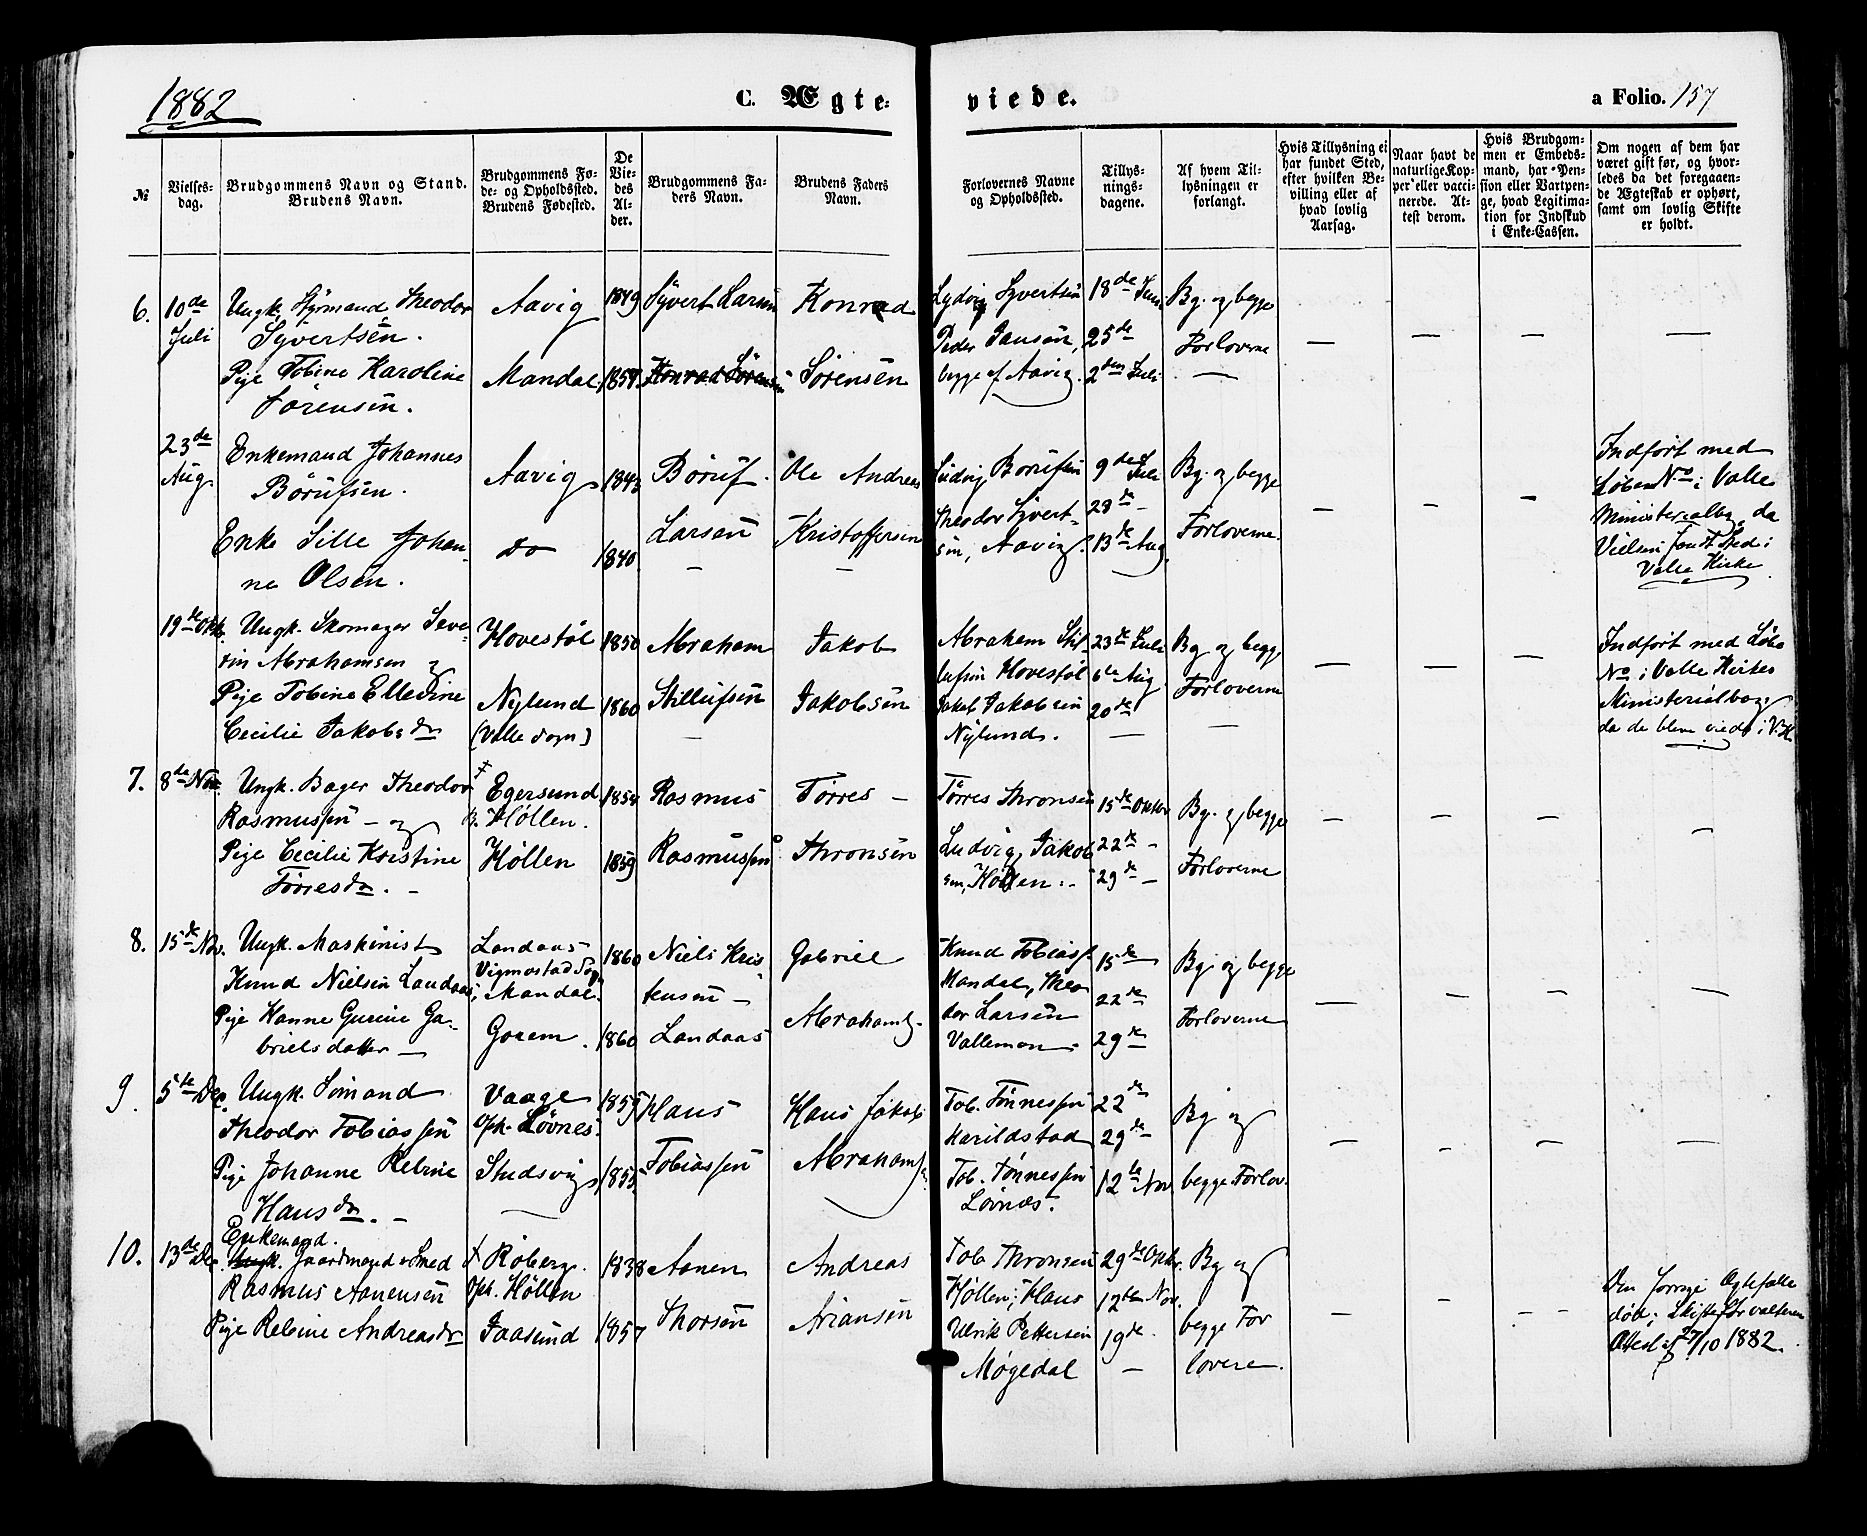 1882
C. Ægte-
viede.
a Folio. 157
№
Vielses-
dag.
Brudgommens Navn og Stand.
Brudens Navn.
Brudgommens Fø-
de- og Opholdssted.
Brudens Fødested.
De
Vie-
des
Al-
der.
Brudgommens Fa-
ders Navn.
Brudens Faders
Navn.
Forlovernes Navne
og Opholdssted.
Tillys-
nings-
dagene.
Af hvem Til-
lysningen er
forlangt.
Hvis Tillysning ei
har fundet Sted,
efter hvilken Be-
villing eller af
hvad lovlig
Aarsag.
Naar havt de
naturlige Kop-
per eller vacci-
nerede. At-
test derom.
Hvis Brudgom-
men er Embeds-
mand, har Pen-
sion eller Vartpen-
ge, hvad Legitima-
tion for Indskud
i Enke-Cassen.
Om nogen af dem har
været gift før, og hvor-
ledes da det foregaaen-
de Ægteskab er ophørt,
samt om lovlig Skifte
er holdt.
6.
10de
Juli
Ungk. Styrmand Theodor
Syvertsen.
Pige Tobine Karoline
Sørensen.
Aavig
Mandal.
1849
1859.
Syvert Larsen
Konrad Sørensen
Konrad
Sørensen
Lydvig Syvertsen
Peder Jansen,
begge af Aavig.
18de Juni
25de
2den Juli
Bg. og begge
Forloverne
23de
Aug.
Enkemand Johannes
Børufsen.
Enke Sille Johan-
ne Olsen.
Aavig
do
1843
1840.
Børuf
Larsen
Ole Andreas
Kristoffersen
Ludvig Børufsen
Theodor Syvert-
sen, Aavig.
9de Juli
28de
13de Aug.
Bg. og begge
Forloverne.
Indført med
Løbe No i Valle
Ministerialbog, da
Vielsen fandt Sted i
Valle Kirke
19de Okt.
Ungk. Skomager Seve-
rin Abrahamsen og
Pige Tobine Elledine
Cecilie Jakobsdr
Hovestøl
Nylund
(Valle Sogn)
1850
1860
Abraham
Stillufsen
Jakob
Jakobsen
Abraham Stil-
lufsen Hovestøl
Jakob Jakobsen
Nylund.
23de Juli
6te Aug
20de
Bg og begge
Forloverne
Indført med Løbe
No i Valle Kirkes
Ministerialbog,
da de bleve viede i V.K.
7.
8de Nov.
Ungk. Bager Theodor
Rasmussen – og
Pige Cecilie Kristine
Tørresdr. –
Egersund
Høllen.
Høllen
1854
1859
Rasmus
Rasmussen
Tørres –
Thronsen
Tørres Thronsen
Ludvig Jakob
sen, Høllen. –
15de Oktbr
22de –
29de –
Bg. og begge
Forloverne
8.
15de Nov.
Ungk. Maskinist
Knud Nielsen Landaas
Pige Hanne Gurine Ga-
brielsdatter –
Landaas
Vigmostad Sogn
Mandal.
Gorem.
1860
1860
Niels Kris-
tensen –
Landaas
Gabriel
Abrahams.
Knud Tobiass.
Mandal, Theo
dor Larsen
Vallemon.
15de
22de
29de
Bg. og begge
Forloverne
9.
5te Dec.
Ungk. Sømand
Theodor Tobiassen
Pige Johanne Rebine
Hansdr. –
Vaage
Oph. Løvnes.
Studsvig
1855
1855.
Hans
Tobiassen
Hans Jakob
Abrahams.
Tob. Tønnessen
Harildstad
Tob. Tønnessen
Løvnæs.
22de
29de –
12te Nov.
Bg. og
begge Forlov.
10.
13de Dec.
Enkemand.
Ungk. Gaardmand & Smed
Rasmus Aanensen
Pige Rebine Andreasdr
Røberg.
Oph. Høllen
Faasund
1838
1857
Aanen
Thorsen
Andreas
Ariansen
Tob Thronsen
Høllen; Hans
Ulrik Pettersen
Møgedal
29de Oktbr.
12te Nov.
19de.
Bg og
begge For
lovere.
Den forrige Ægtefælle
død; Skifteforvalteren
Attest af 27/10 1882.